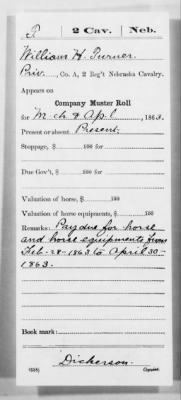 T | 2 Cav. | Neb.
William H. Turner
Priv., Co. A, 2 Reg't Nebraska Cavalry.
Appears on
Company Muster Roll
for Mch & Apl, 1863.
Present or absent, Present.
Stoppage, $ 100 for
Due Gov't, $ 100 for
Valuation of horse, $ 100
Valuation of horse equipments, $ 100
Remarks: Pay due for horse
and horse equipments from
Feb-28-1863 to April 30-
1863.
Book mark:
Dickerson.
(358) Copyist.